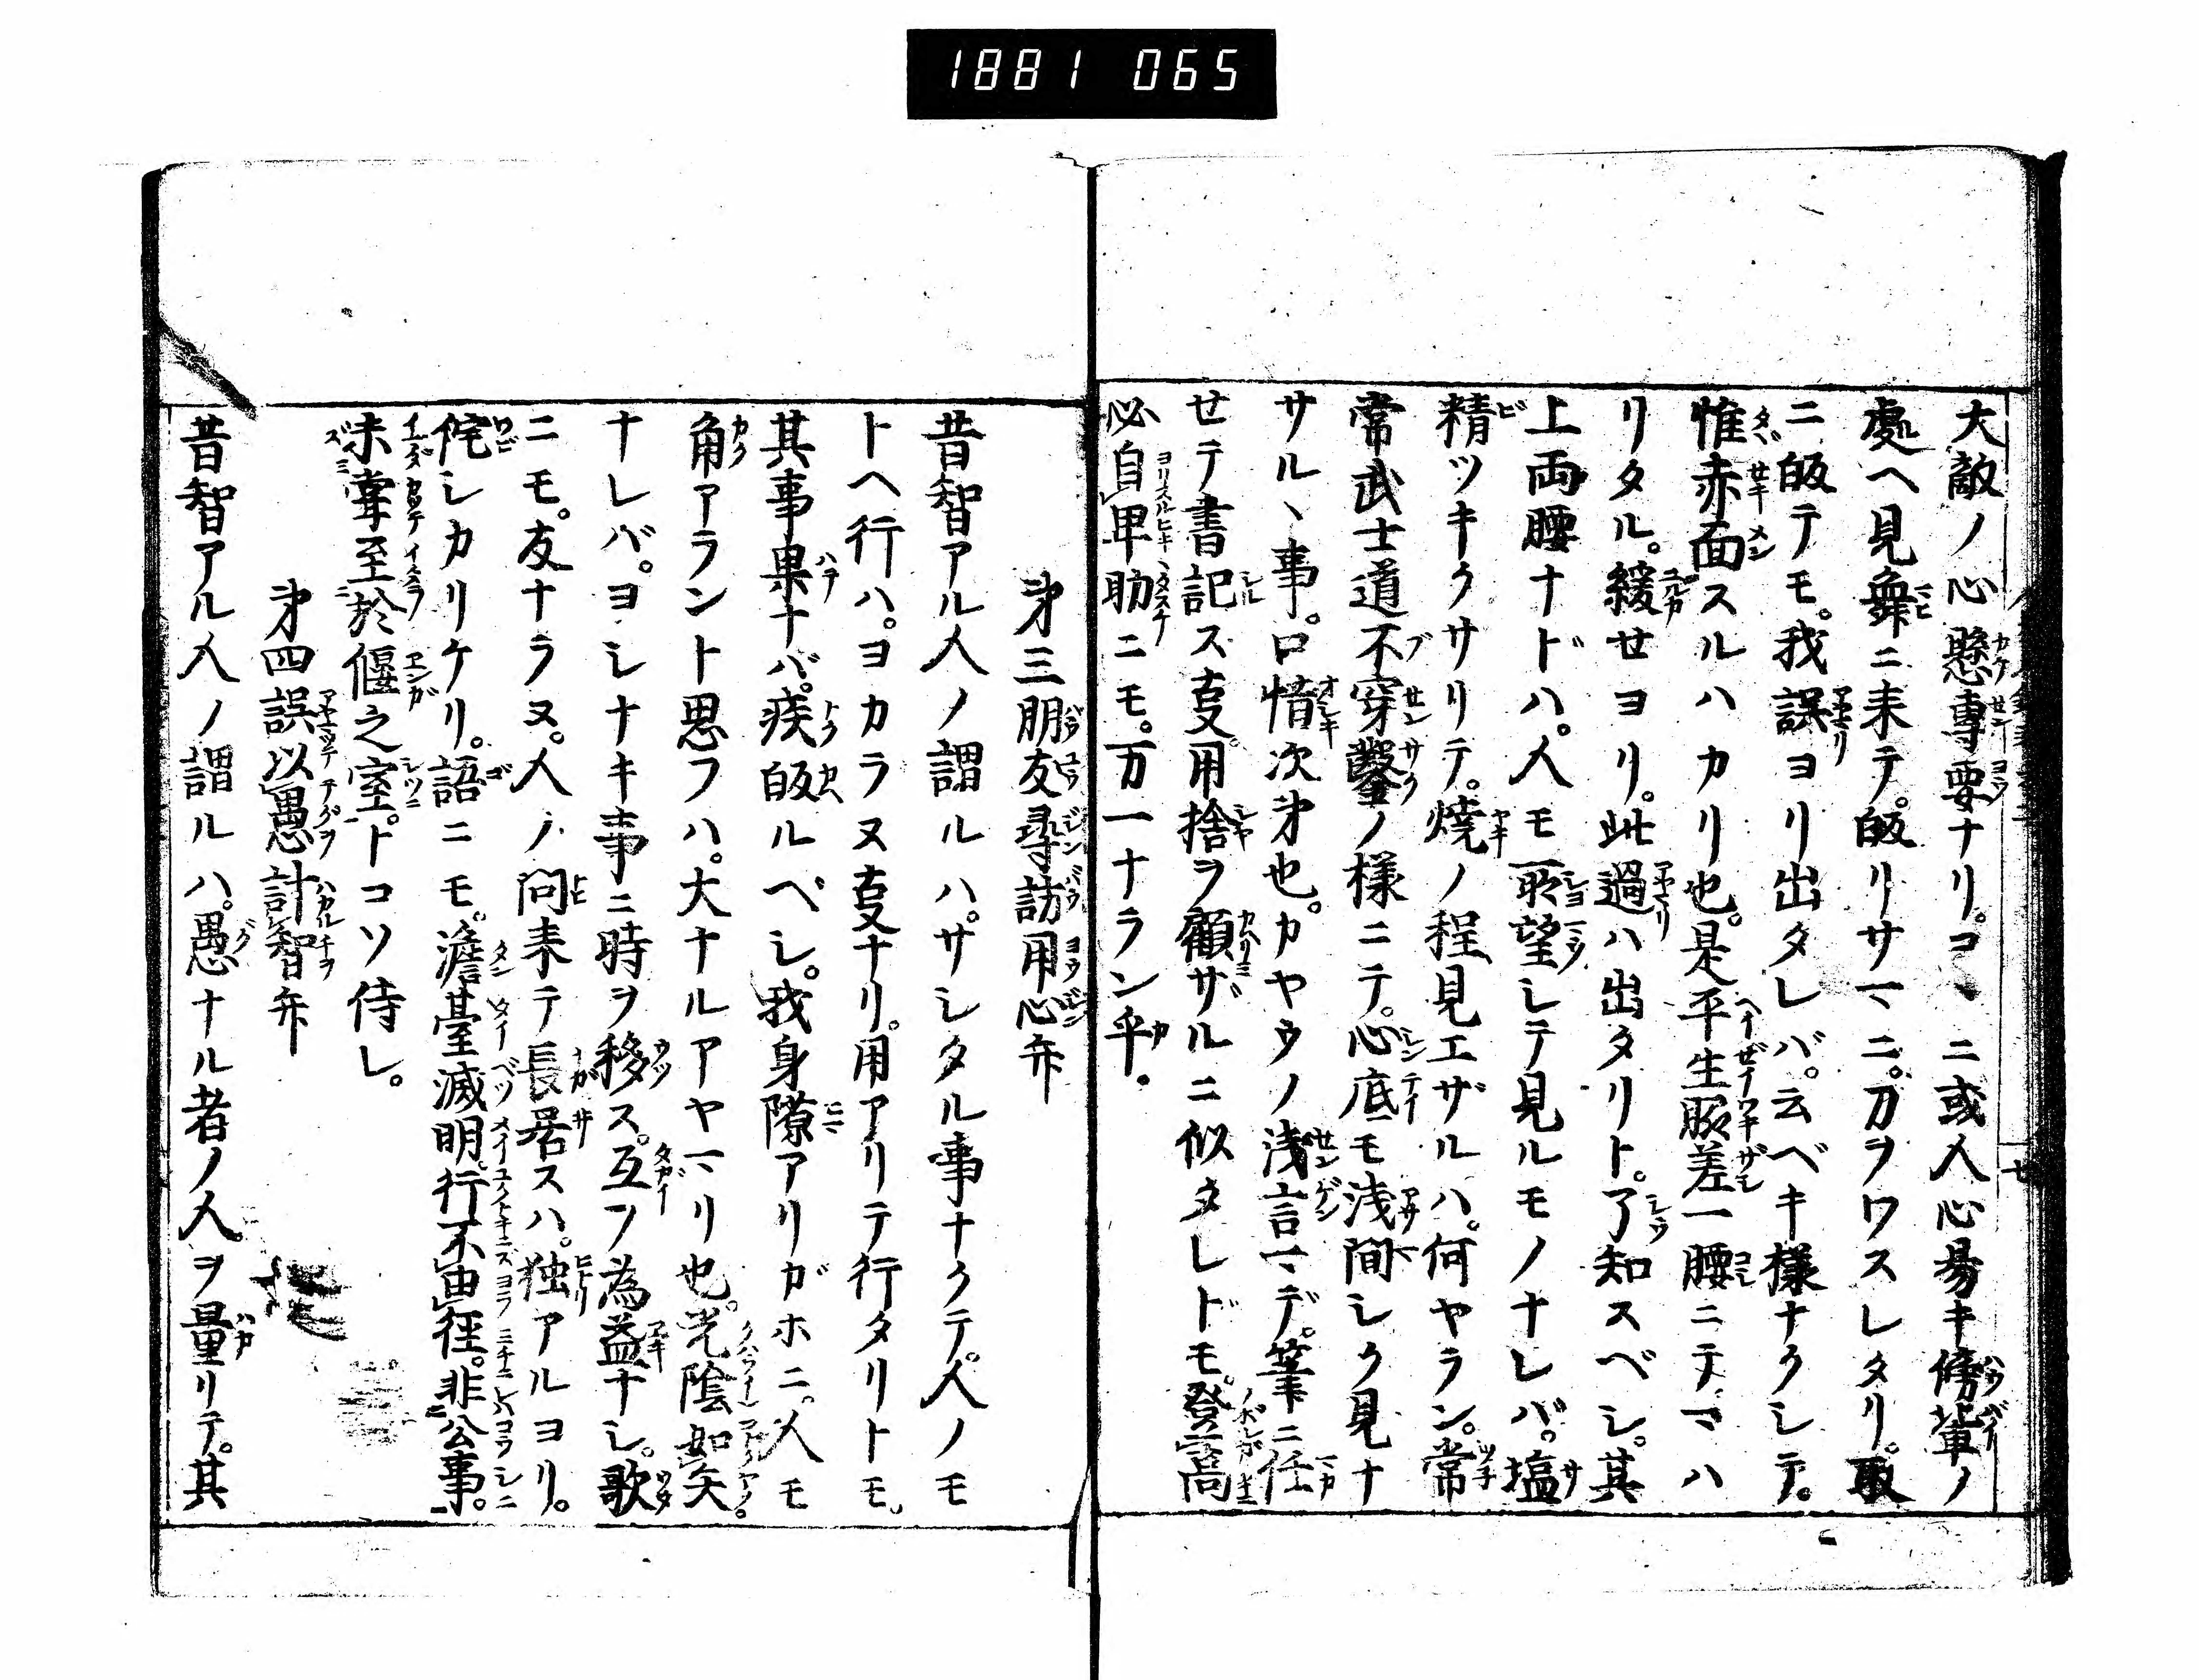 1881 065
大敵ノ心懸専要ナリ。コヽニ或人心易キ傍輩ノ
處ヘ見舞ニ来テ。皈リサマニ。刀ヲワスレタリ。取
ニ皈テモ。我誤ヨリ出タレバ。云ベキ様ナクシテ。
惟赤面スルハカリ也。是平生脇差一腰ニテ、マハ
リタル。緩セヨリ。此過ハ出タリト。了知スベシ。其
上両腰ナドハ。人モ所望シテ見ルモノナレバ。塩
精ツキクサリテ。焼ノ程見エザルハ。何ヤラン。常
常武士道不穿鑿ノ様ニテ。心底モ浅間シク見ナ
サルヽ事。口惜次第也。カヤウノ浅言マデ。筆ニ任
せテ書記ス叓。用捨ヲ顧ザルニ似タレドモ。登高
必自卑助ニモ。万一ナラン乎。
第三朋友尋訪用心弁
昔智アル人ノ謂ルハ。サシタル事ナクテ。人ノモ
トヘ行ハ。ヨカラヌ叓ナリ。用アリテ行タリトモ。
其事果ナバ。疾皈ルベシ。我身隙アリガホニ。人モ
角アラント思フハ。大ナルアヤマリ也。光陰如矢
ナレバ。ヨシナキ事ニ時ヲ移ス。互ノ為益ナシ。歌
ニモ。友ナラヌ。人ノ問来テ長居スハ。独アルヨリ。
侘シカリケリ。語ニモ。澹臺滅明。行不由径。非公事。
未嘗至於偃之室。トコソ侍レ。
第四誤以愚計智弁
昔智アル人ノ謂ルハ。愚ナル者ノ人ヲ量リテ。其